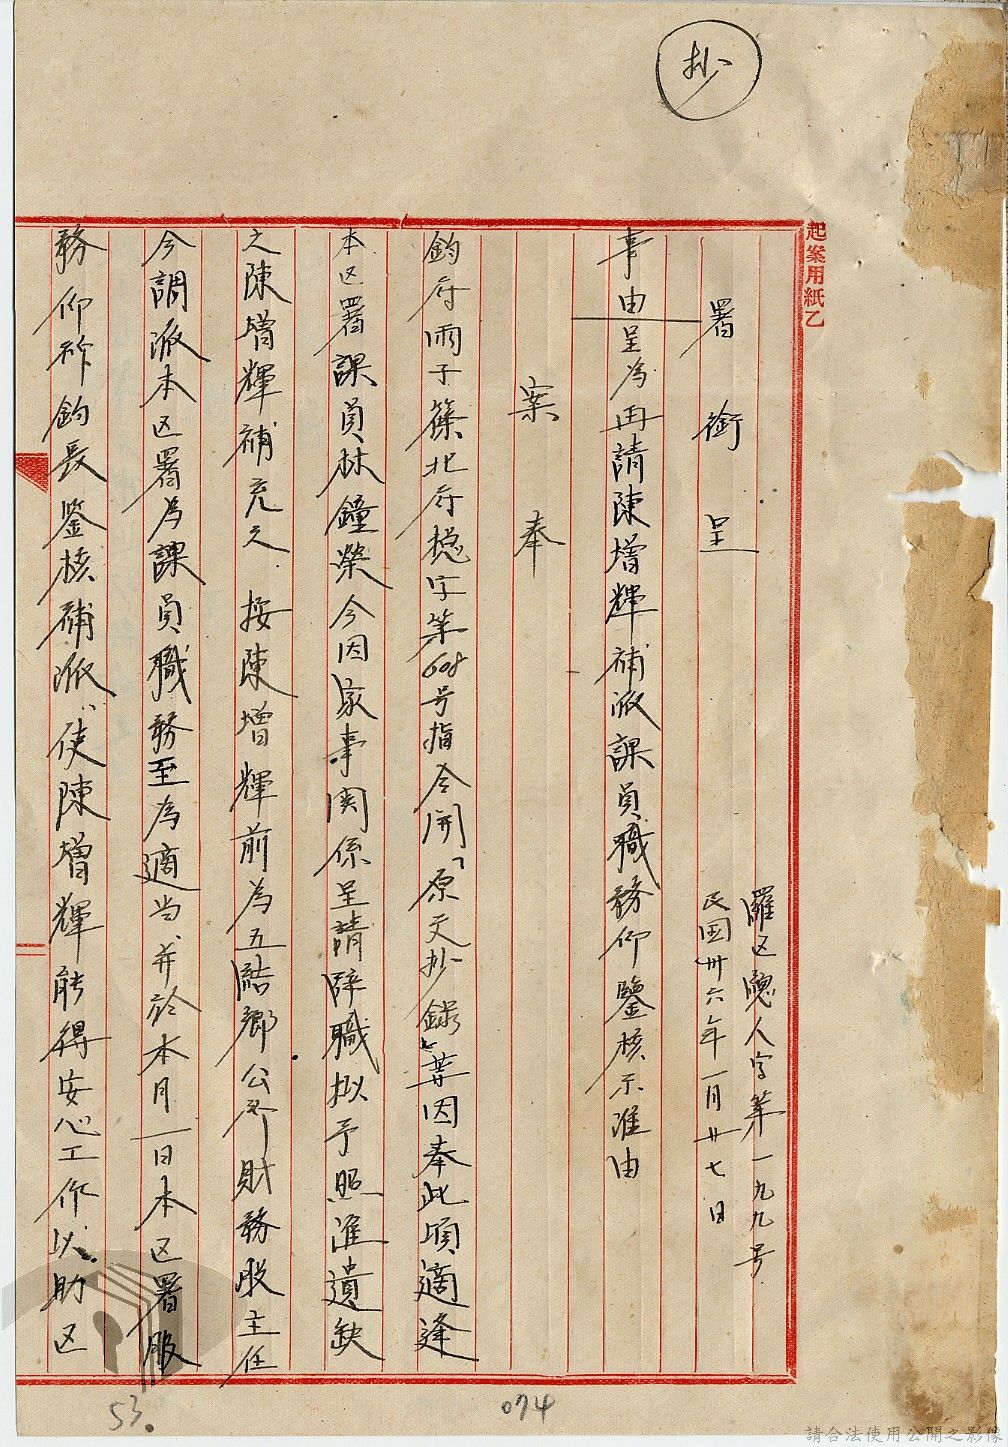 抄
起案用紙乙
羅区總人字第一九九号
民国卅六年一月廿七日
署銜呈
事由呈為再請陳增輝補派課員職務仰鑒核示准由
案奉
鈞府雨子篠北府總字第608号指令開「原文抄錄」等因奉此頃適逢
本区署課員林鐘榮今因家事関係呈請辞職拟予照準遺缺
之陳增輝補充之 按陳增輝前為五結鄉公所財務股主任
今調派本区署為課員職務至為適当、并於本月一日本区署服
務仰祈鈞長鉴核補派、使陳增輝能得安心工作以助区
53.
074
請合法使用公開之影像